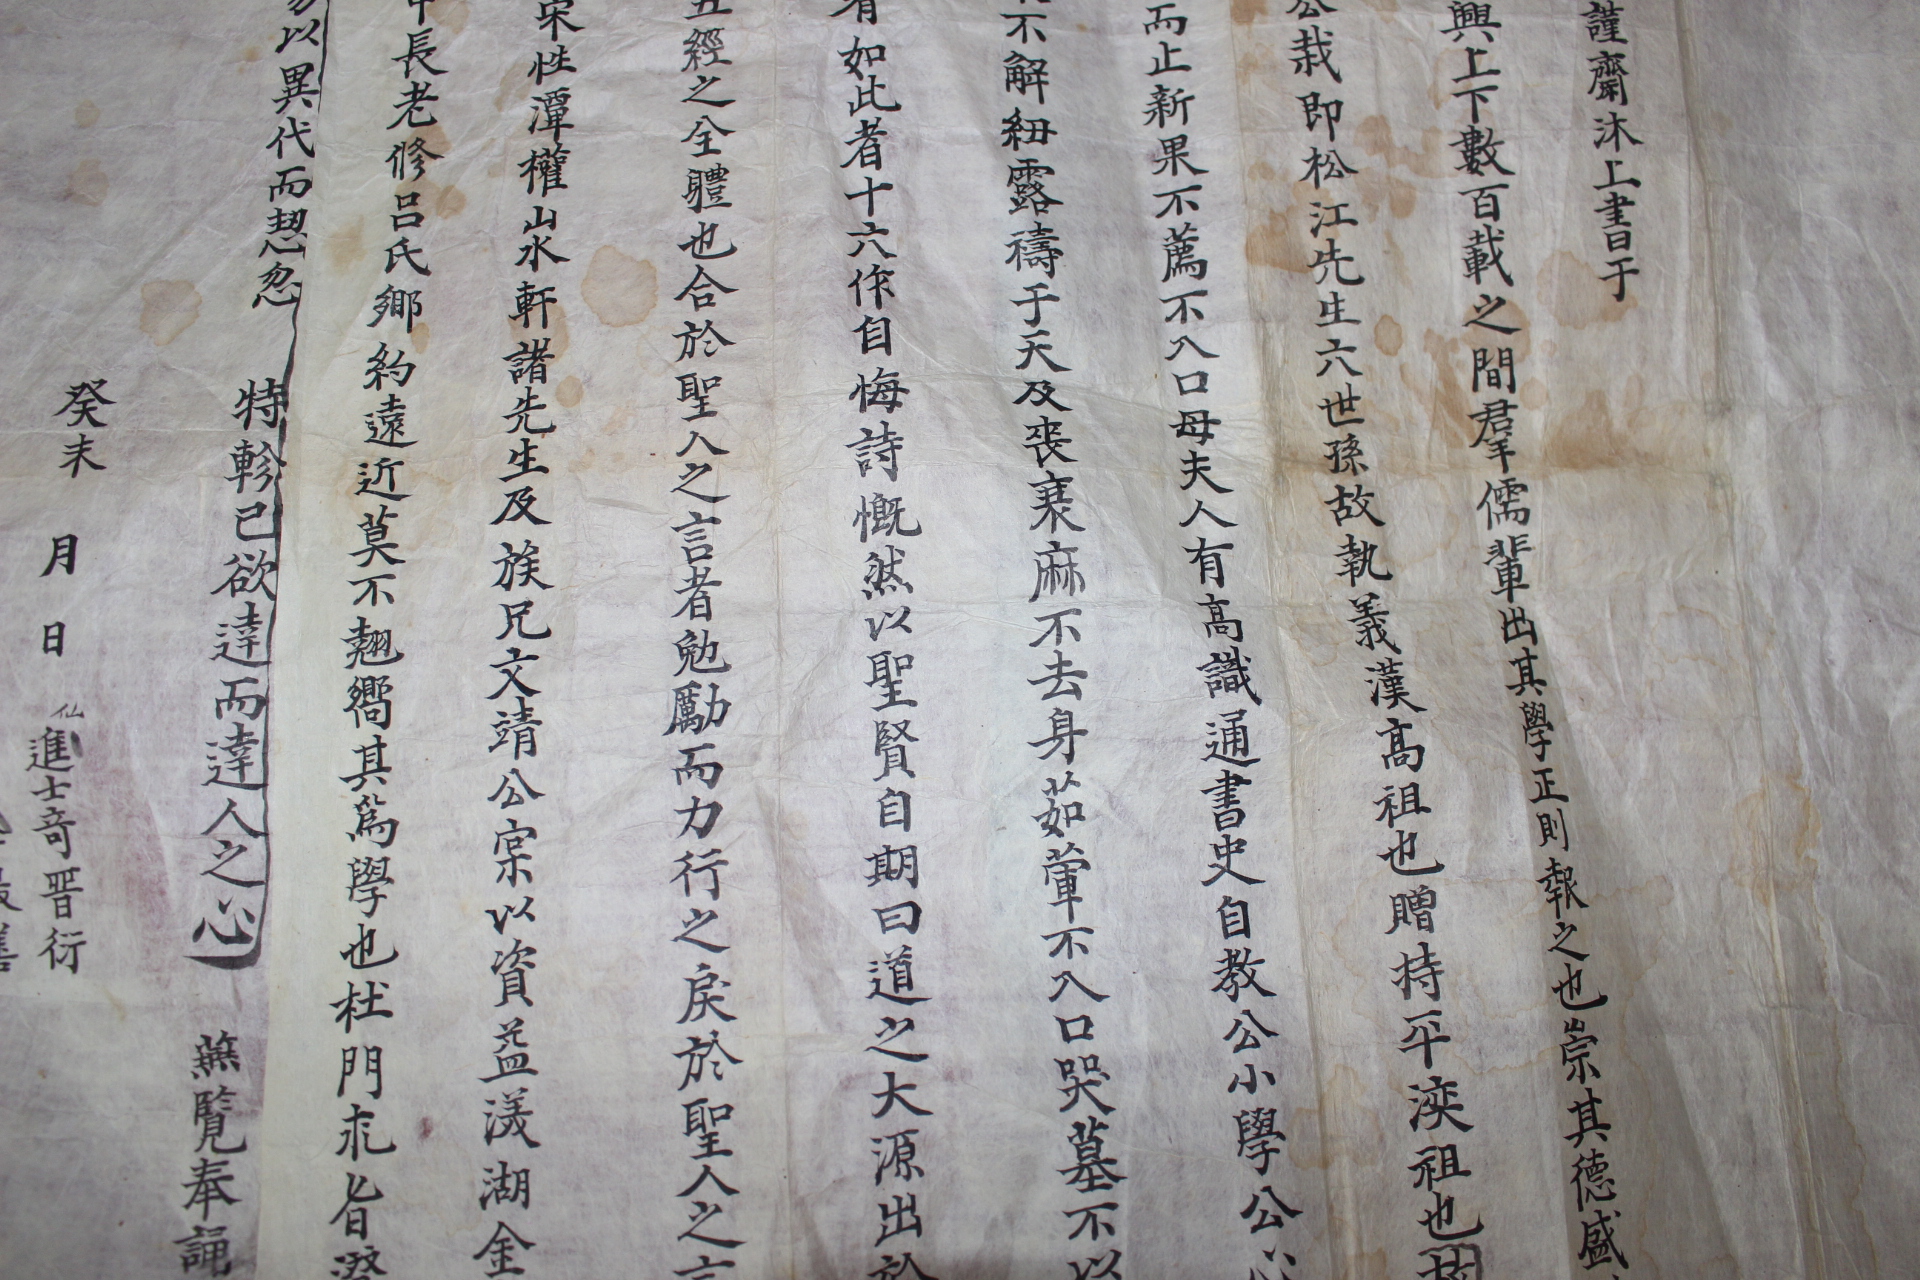 謹齋沐上書于
其學正則報之也崇其德盛
興上下數百載之間羣儒輩出
公栽即松江先生六世孫故執義漢高祖也贈持平滐祖也
而止新果不薦不入口母夫人有高識通書史自教公小學公心
不解紐露禱于天及喪衰麻不去身茹葷不入口哭墓不以
有如此者十六作自悔詩慨然以聖賢自期曰道之大源出於
五經之全體也合於聖人之言者勉勵而力行之戾於聖人之言
宋性潭權山水軒諸先生及族兄文靖公寀以資益渼湖金
中長老修呂氏鄉約遠近莫不翹嚮其爲學也杜門求旨
以異代而恝忽
特軫已欲達而達人之心
蕪覽奉誦
癸未 月 日 仙 進士奇晋衍
善